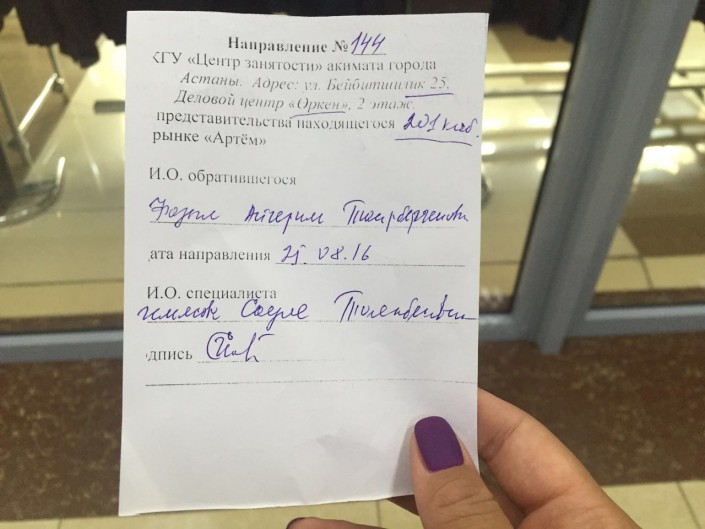 Направление № 144
КГУ «Центр занятости» акимата города
Астаны. Адрес: ул. Бейбитшилик 25.
Деловой центр «Өркен», 2 этаж.
представительства находящегося 201 каб.
рынке «Артём»
И.О. обратившегося
Айгерим
ата направления 25.08.16
И.О. специалиста
Сауле
одпись